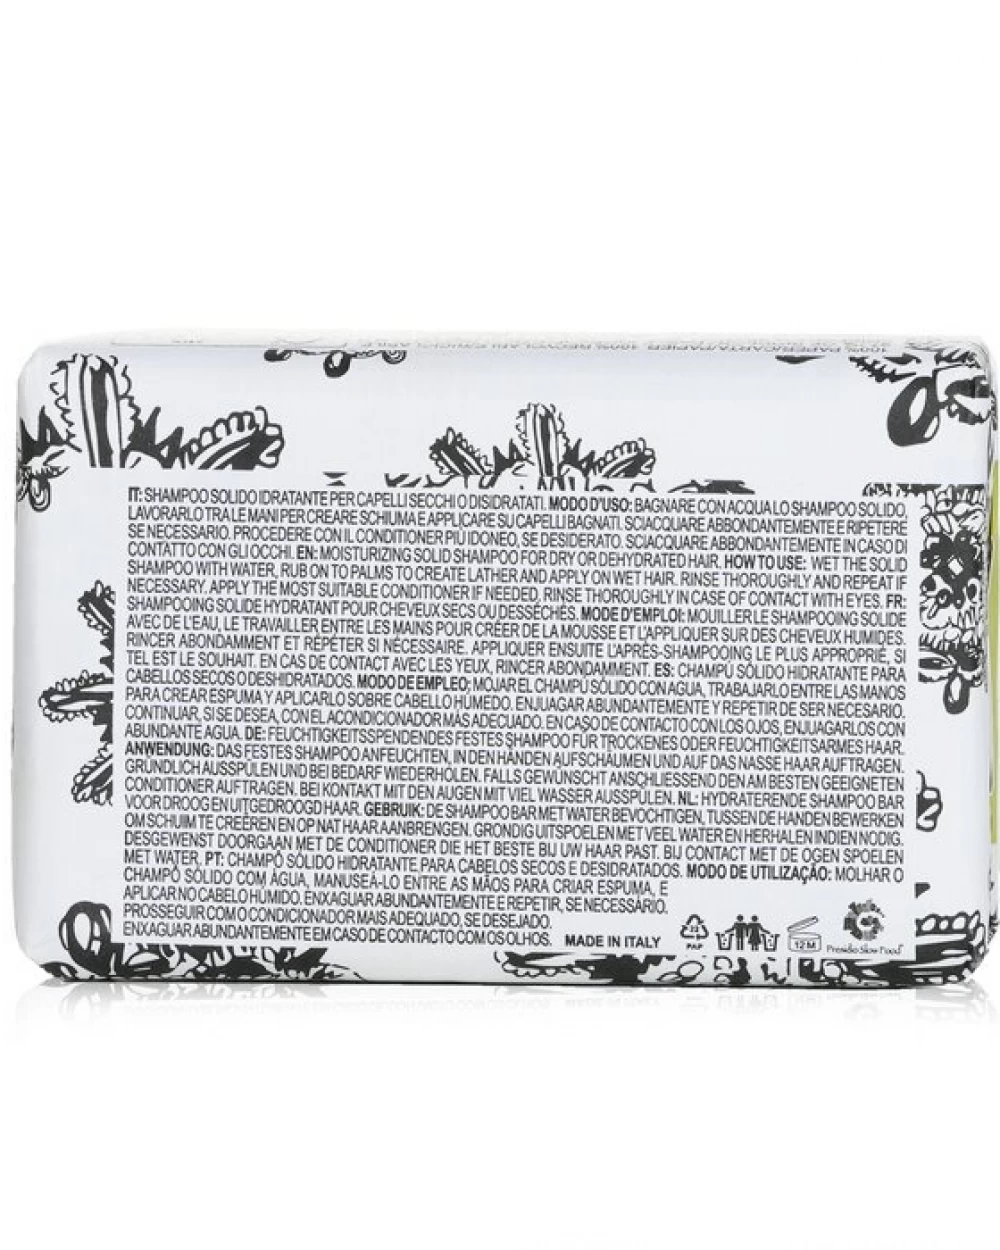 100% PAPER/CARTA/PAPIER 100% RECYCLABLE/RICICLABILE
IT: SHAMPOO SOLIDO IDRATANTE PER CAPELLI SECCHI O DISIDRATATI. MODO D'USO: BAGNARE CON ACQUA LO SHAMPOO SOLIDO,
LAVORARLO TRA LE MANI PER CREARE SCHIUMA E APPLICARE SU CAPELLI BAGNATI. SCIACQUARE ABBONDANTEMENTE E RIPETERE
SE NECESSARIO. PROCEDERE CON IL CONDITIONER PIÙ IDONEO, SE DESIDERATO. SCIACQUARE ABBONDANTEMENTE IN CASO DI
CONTATTO CON GLI OCCHI. EN: MOISTURIZING SOLID SHAMPOO FOR DRY OR DEHYDRATED HAIR. HOW TO USE: WET THE SOLID
SHAMPOO WITH WATER, RUB ON TO PALMS TO CREATE LATHER AND APPLY ON WET HAIR. RINSE THOROUGHLY AND REPEAT IF
NECESSARY. APPLY THE MOST SUITABLE CONDITIONER IF NEEDED. RINSE THOROUGHLY IN CASE OF CONTACT WITH EYES. FR:
SHAMPOOING SOLIDE HYDRATANT POUR CHEVEUX SECS OU DESSÉCHÉS. MODE D'EMPLOI: MOUILLER LE SHAMPOOING SOLIDE
AVEC DE L'EAU, LE TRAVAILLER ENTRE LES MAINS POUR CRÉER DE LA MOUSSE ET L'APPLIQUER SUR DES CHEVEUX HUMIDES.
RINCER ABONDAMMENT ET RÉPÉTER SI NÉCESSAIRE. APPLIQUER ENSUITE L'APRÈS-SHAMPOOING LE PLUS APPROPRIÉ, SI
TEL EST LE SOUHAIT. EN CAS DE CONTACT AVEC LES YEUX, RINCER ABONDAMMENT. ES: CHAMPÚ SÓLIDO HIDRATANTE PARA
CABELLOS SECOS O DESHIDRATADOS. MODO DE EMPLEO: MOJAR EL CHAMPÚ SÓLIDO CON AGUA, TRABAJARLO ENTRE LAS MANOS
PARA CREAR ESPUMA Y APLICARLO SOBRE CABELLO HÚMEDO. ENJUAGAR ABUNDANTEMENTE Y REPETIR DE SER NECESARIO.
CONTINUAR, SI SE DESEA, CON EL ACONDICIONADOR MÁS ADECUADO. EN CASO DE CONTACTO CON LOS OJOS, ENJUAGARLOS CON
ABUNDANTE AGUA. DE: FEUCHTIGKEITSSPENDENDES FESTES SHAMPOO FÜR TROCKENES ODER FEUCHTIGKEITSARMES HAAR.
ANWENDUNG: DAS FESTES SHAMPOO ANFEUCHTEN, IN DEN HÄNDEN AUFSCHÄUMEN UND AUF DAS NASSE HAAR AUFTRAGEN.
GRÜNDLICH AUSSPÜLEN UND BEI BEDARF WIEDERHOLEN. FALLS GEWÜNSCHT ANSCHLIESSEND DEN AM BESTEN GEEIGNETEN
CONDITIONER AUFTRAGEN. BEI KONTAKT MIT DEN AUGEN MIT VIEL WASSER AUSSPÜLEN. NL: HYDRATERENDE SHAMPOO BAR
VOOR DROOG EN UITGEDROOGD HAAR. GEBRUIK: DE SHAMPOO BAR MET WATER BEVOCHTIGEN, TUSSEN DE HANDEN BEWERKEN
OM SCHUIM TE CREËREN EN OP NAT HAAR AANBRENGEN. GRONDIG UITSPOELEN MET VEEL WATER EN HERHALEN INDIEN NODIG.
DESGEWENST DOORGAAN MET DE CONDITIONER DIE HET BESTE BIJ UW HAAR PAST. BIJ CONTACT MET DE OGEN SPOELEN
MET WATER. PT: CHAMPÔ SÓLIDO HIDRATANTE PARA CABELOS SECOS E DESIDRATADOS. MODO DE UTILIZAÇÃO: MOLHAR O
CHAMPÔ SÓLIDO COM ÁGUA, MANUSEÁ-LO ENTRE AS MÃOS PARA CRIAR ESPUMA, E
APLICAR NO CABELO HÚMIDO. ENXAGUAR ABUNDANTEMENTE E REPETIR, SE NECESSÁRIO.
PROSSEGUIR COM O CONDICIONADOR MAIS ADEQUADO, SE DESEJADO.
ENXAGUAR ABUNDANTEMENTE EM CASO DE CONTACTO COM OS OLHOS. MADE IN ITALY
22
PAP
12 M
Presidio Slow Food®